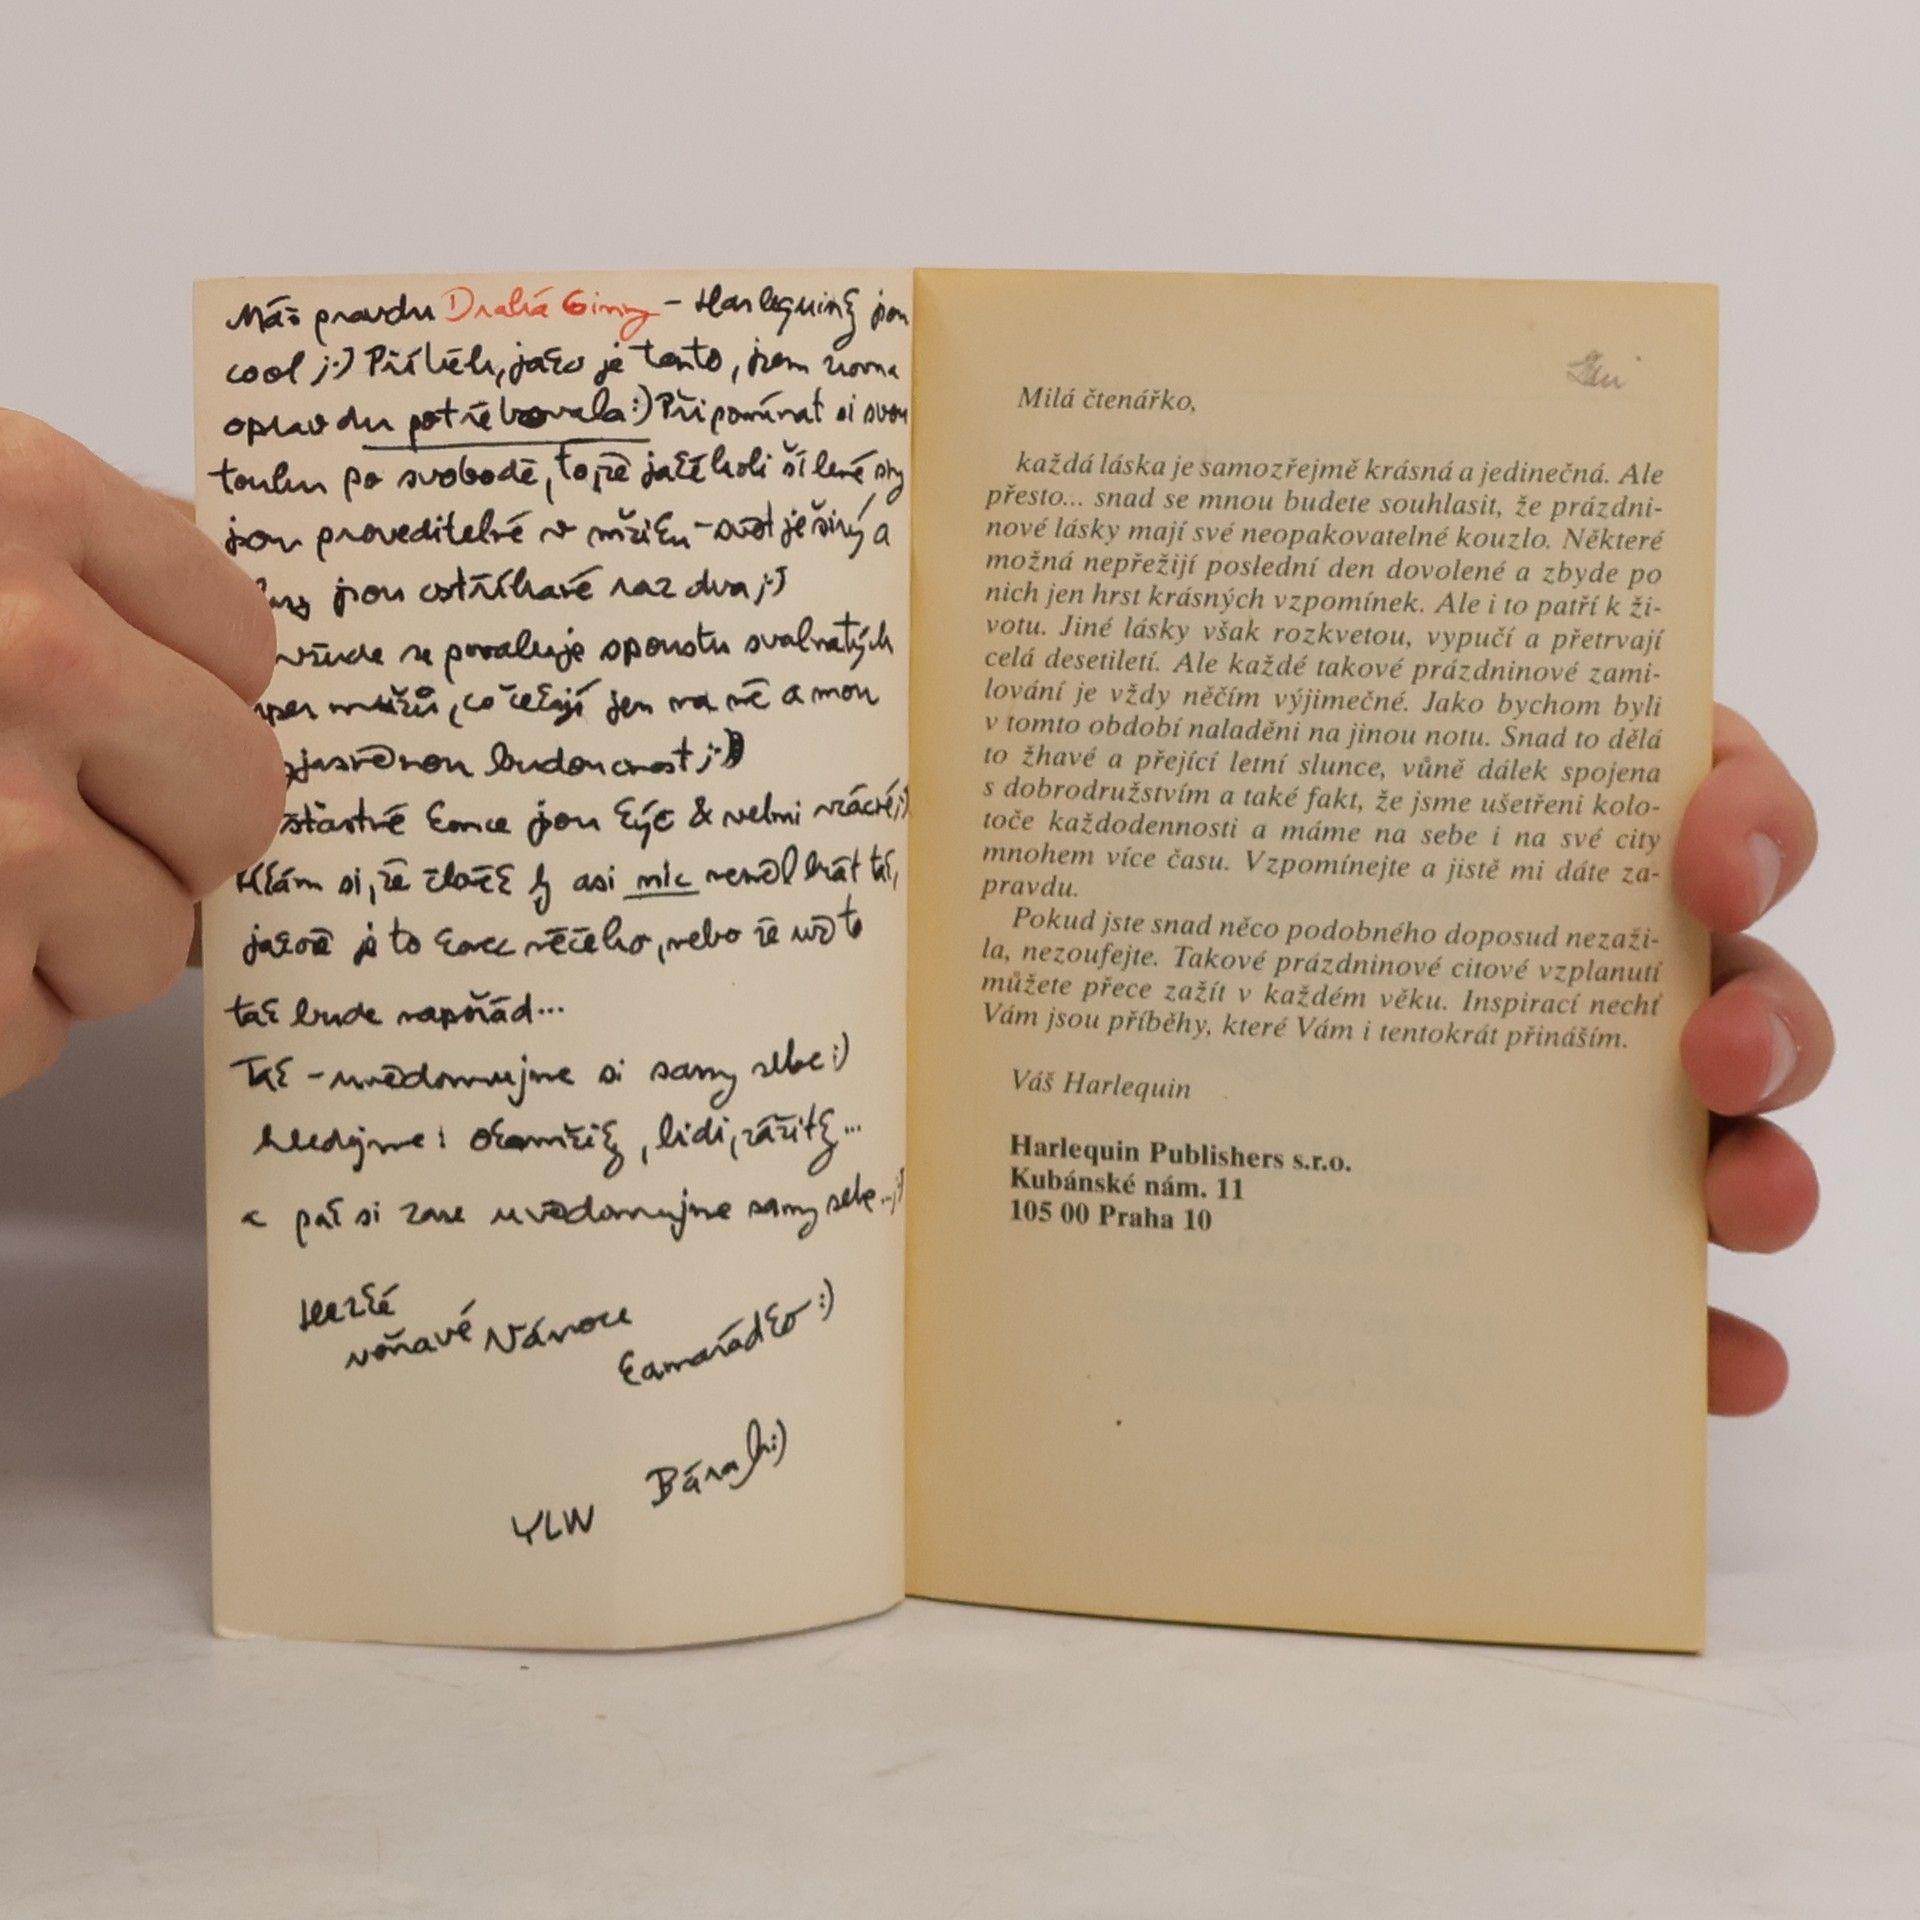 Máš pravdu Drahá Ginny - Harlequiny jsou
cool ;-) Příběh, jako je tento, jsem zrovna
opravdu potřebovala :) Připomínat si svou
touhu po svobodě, to, že jakékoli šílené sny
jsou proveditelné v mžiku - svět je širý a
jsou ostříhané raz dva ;-)
všude se povaluje spoustu svalnatých
mužů, co čekají jen na mě a mou
budoucnost ;-)
šťastné konce jsou kýč & velmi vzácné ;)
Říkám si, že člověk by asi nic neměl brát tak,
jakože je to konec něčeho, nebo že už to
tak bude napořád...
Tak - uvědomujme si samy sebe :)
hledejme: okamžiky, lidi, zážitky...
a pak si zase uvědomujme samy sebe.. ;)
Hezké
voňavé Vánoce
kamarádko :)
Bára :)
YLW
Milá čtenářko,
každá láska je samozřejmě krásná a jedinečná. Ale
přesto... snad se mnou budete souhlasit, že prázdni-
nové lásky mají své neopakovatelné kouzlo. Některé
možná nepřežijí poslední den dovolené a zbyde po
nich jen hrst krásných vzpomínek. Ale i to patří k ži-
votu. Jiné lásky však rozkvetou, vypučí a přetrvají
celá desetiletí. Ale každé takové prázdninové zami-
lování je vždy něčím výjimečné. Jako bychom byli
v tomto období naladěni na jinou notu. Snad to dělá
to žhavé a přející letní slunce, vůně dálek spojena
s dobrodružstvím a také fakt, že jsme ušetřeni kolo-
toče každodennosti a máme na sebe i na své city
mnohem více času. Vzpomínejte a jistě mi dáte za-
pravdu.
Pokud jste snad něco podobného doposud nezaži-
la, nezoufejte. Takové prázdninové citové vzplanutí
můžete přece zažít v každém věku. Inspirací nechť
Vám jsou příběhy, které Vám i tentokrát přináším.
Váš Harlequin
Harlequin Publishers s.r.o.
Kubánské nám. 11
105 00 Praha 10